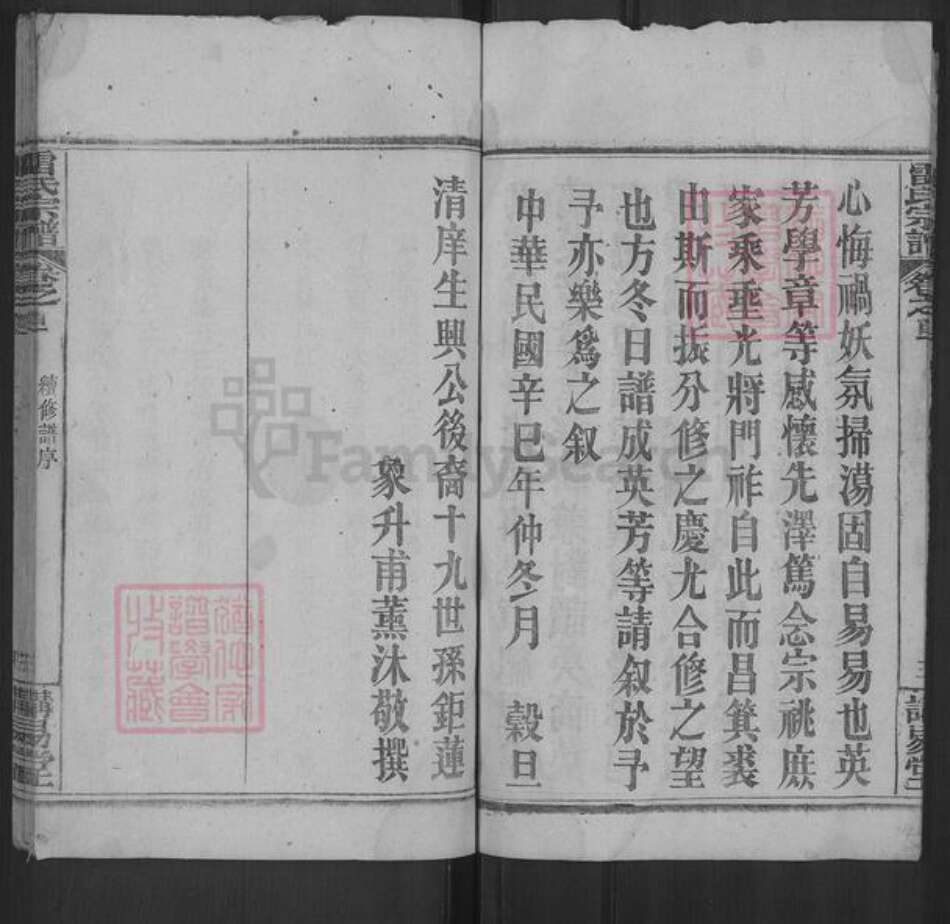 雷氏宗譜
卷之首
講易堂
心悔禍妖氛掃蕩固自易易也英
芳學章等感懷先澤篤念宗祧庶
家乘垂光將門祚自此而昌箕裘
由斯而振分修之慶尤合修之望
也方冬日譜成英芳等請叙於予
予亦樂爲之叙
中華民國辛巳年仲冬月 穀旦
清庠生興公後裔十九世孫鉅蓮
象升甫薰沐敬撰
雷氏宗譜
卷之首
續修譜序
講易堂
FamilySearch